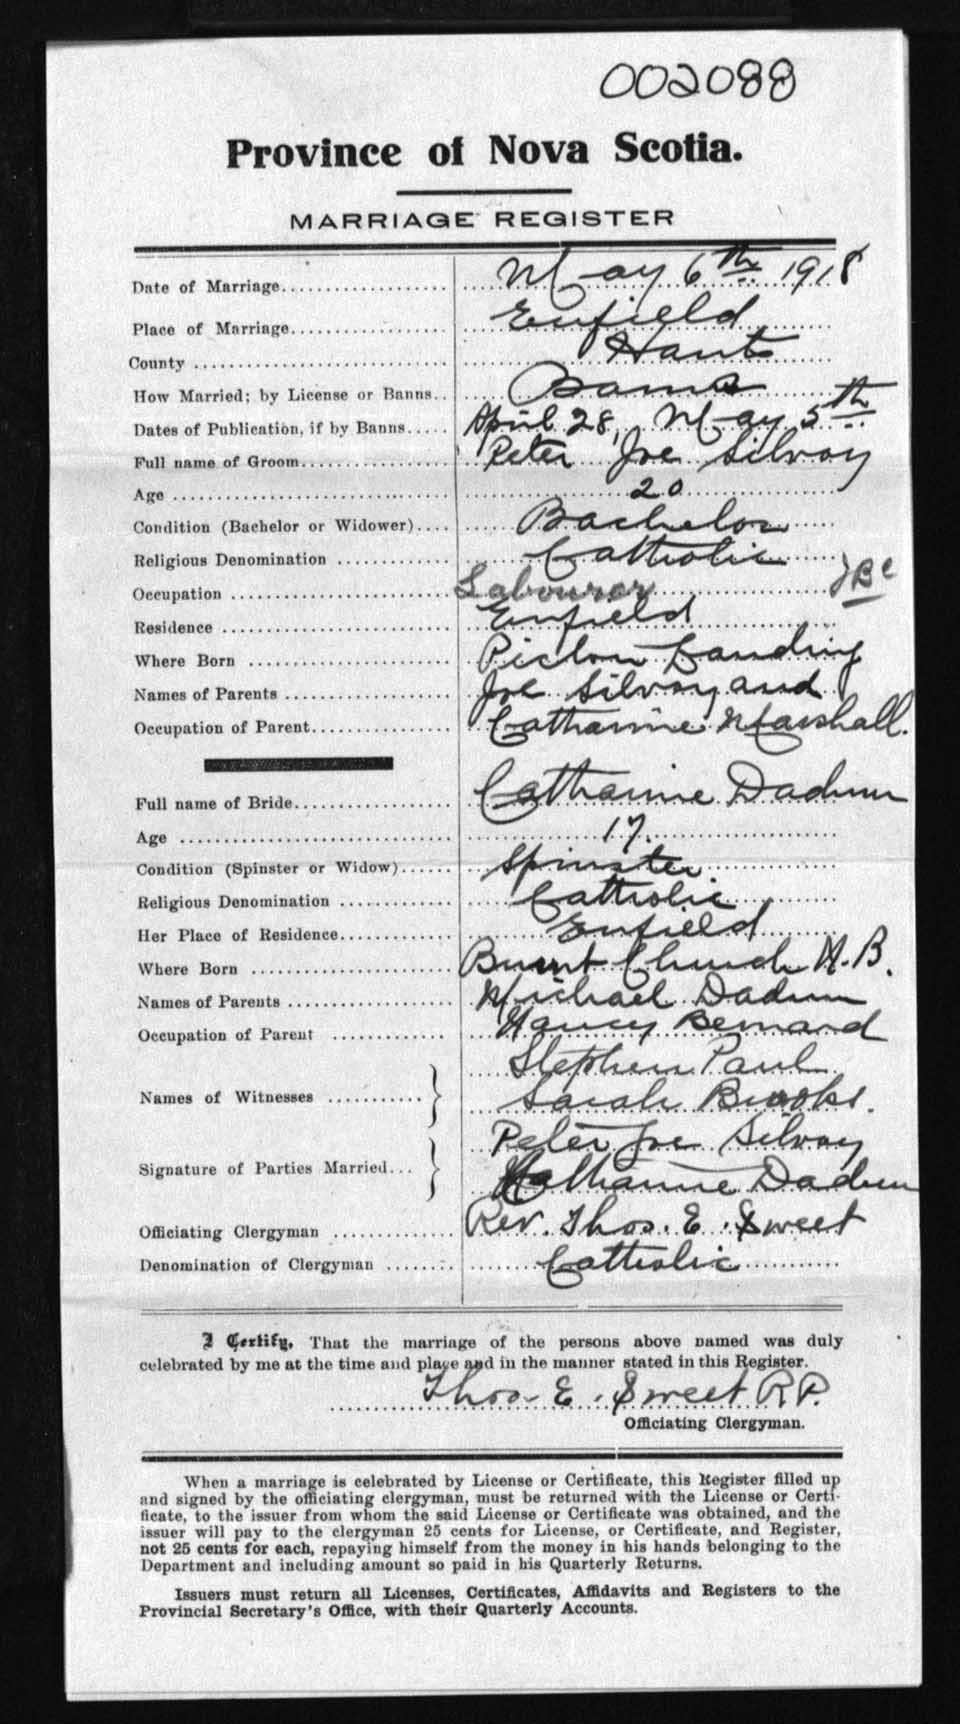 002088
Province of Nova Scotia.
MARRIAGE REGISTER
Date of Marriage May 6th 1918
Place of Marriage Enfield
County Hants
How Married; by License or Banns Banns
Dates of Publication, if by Banns April 28, May 5th
Full name of Groom Peter Joe Silvoy
Age 20
Condition (Bachelor or Widower) Bachelor
Religious Denomination Catholic
Occupation Labourer
Residence Enfield
Where Born Pictou Landing
Names of Parents Joe Silvoy and
Occupation of Parent Catharine Marshall.
Full name of Bride Catharine Dadum
Age 17.
Condition (Spinster or Widow) Spinster
Religious Denomination Catholic
Her Place of Residence Enfield
Where Born Burnt Church N.B.
Names of Parents Michael Dadum
Occupation of Parent Nancy Bernard
Names of Witnesses Stephen Paul
Sarah Brooks.
Signature of Parties Married Peter Joe Silvoy
Katharine Dadum
Officiating Clergyman Rev. Thos. E. Sweet
Denomination of Clergyman Catholic
I Certify, That the marriage of the persons above named was duly
celebrated by me at the time and place and in the manner stated in this Register.
Thos. E. Sweet R.P.
Officiating Clergyman.
When a marriage is celebrated by License or Certificate, this Register filled up
and signed by the officiating clergyman, must be returned with the License or Certi-
ficate, to the issuer from whom the said License or Certificate was obtained, and the
issuer will pay to the clergyman 25 cents for License, or Certificate, and Register,
not 25 cents for each, repaying himself from the money in his hands belonging to the
Department and including amount so paid in his Quarterly Returns.
Issuers must return all Licenses, Certificates, Affidavits and Registers to the
Provincial Secretary's Office, with their Quarterly Accounts.